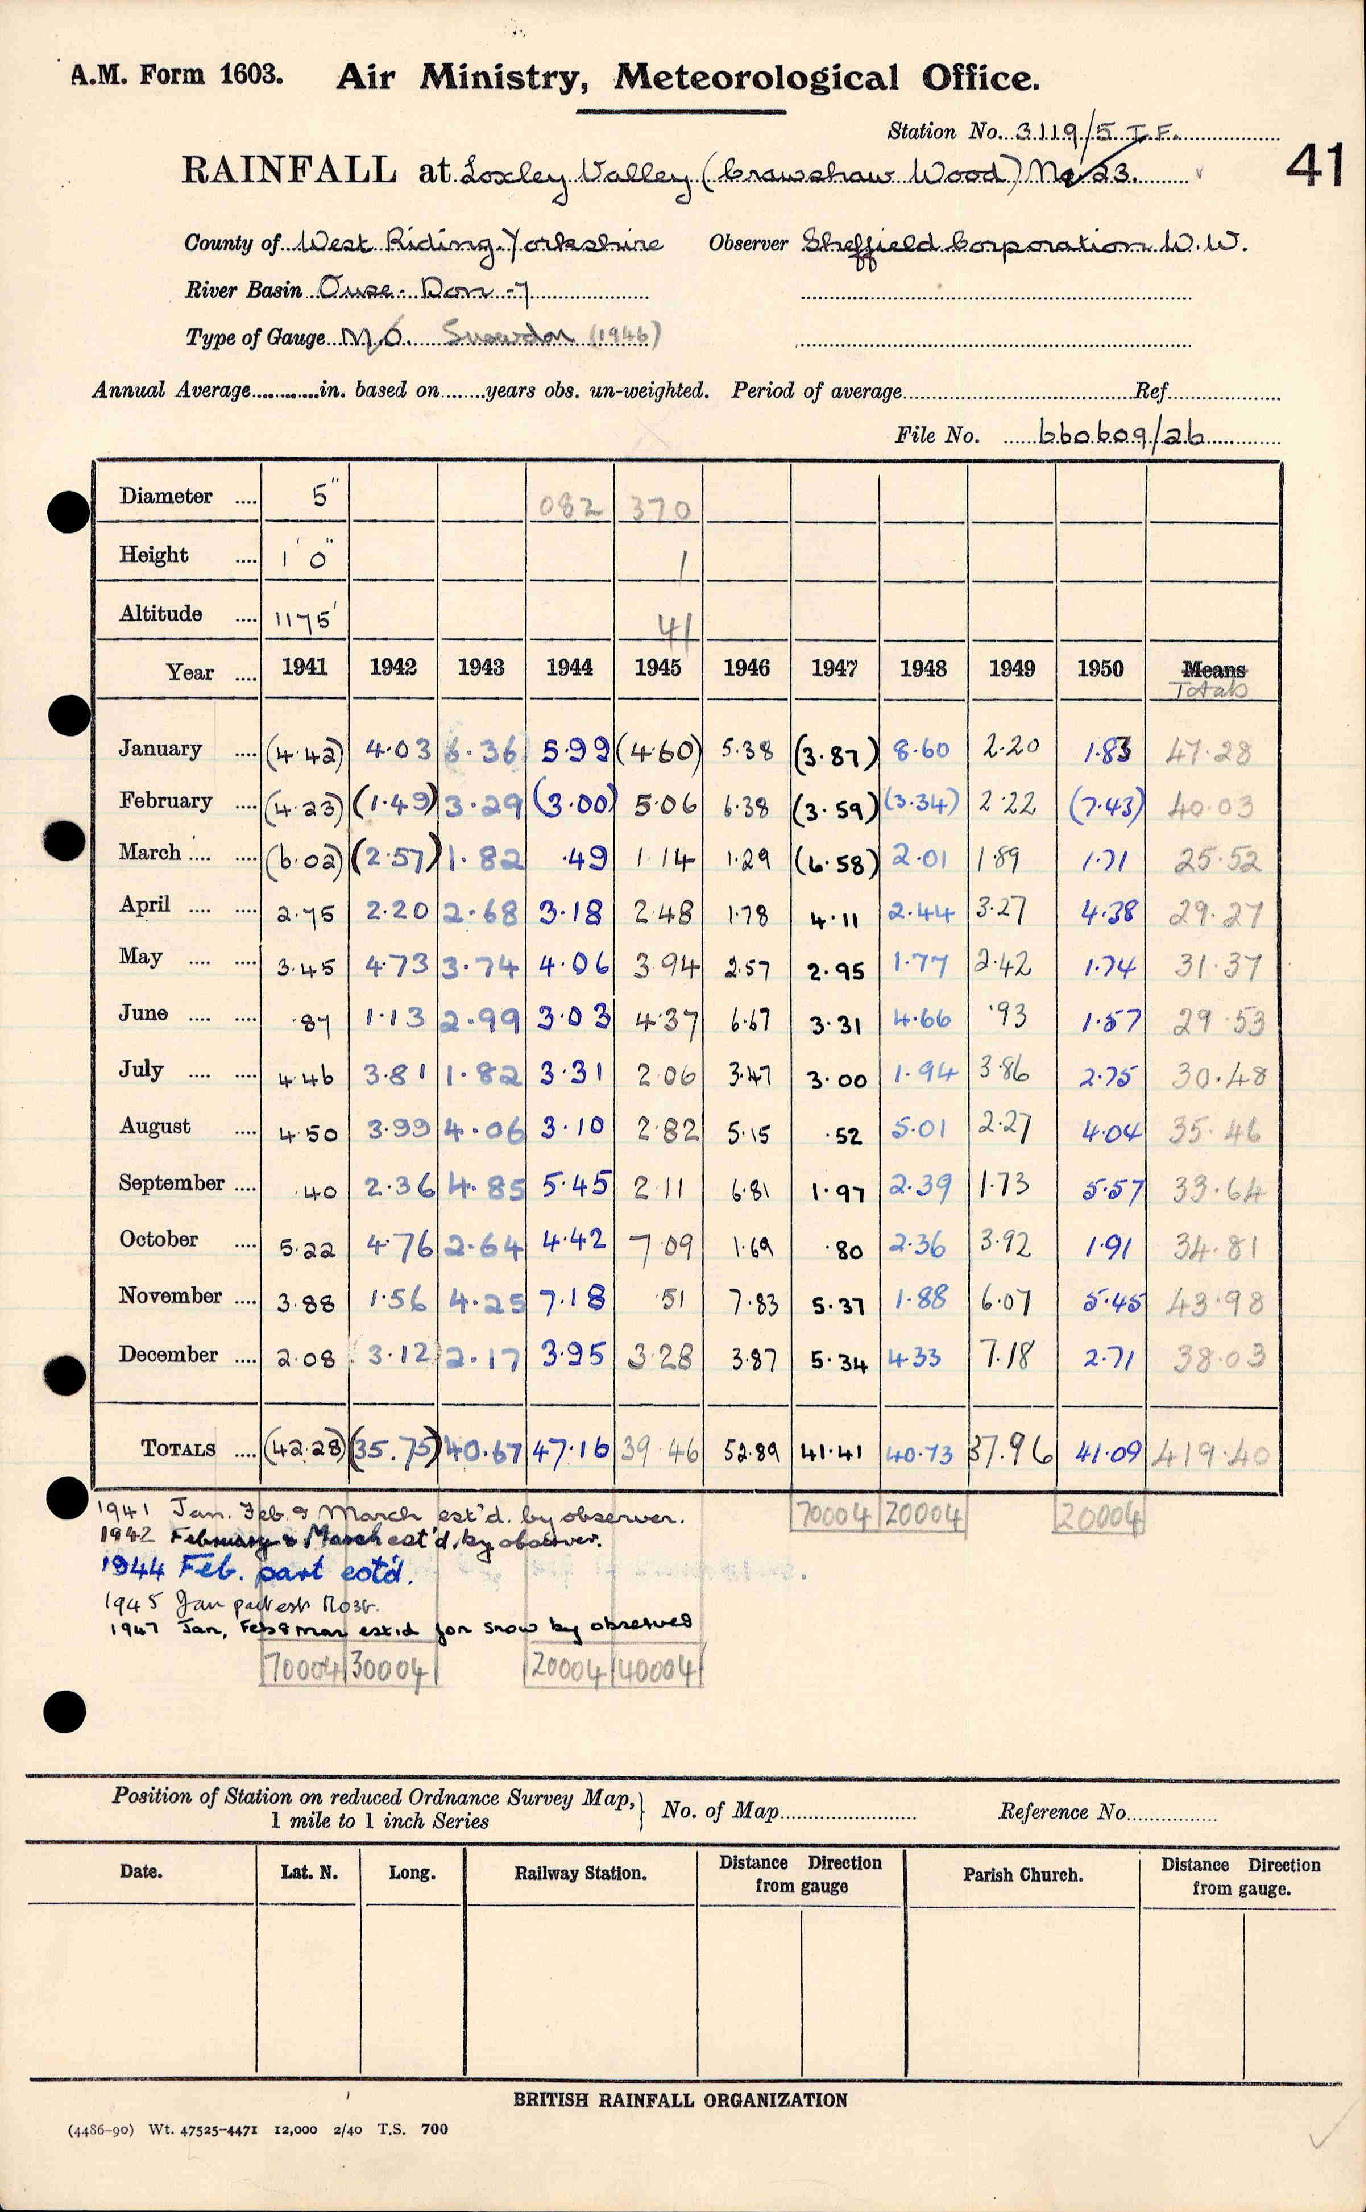 A.M. Form 1603. Air Ministry, Meteorological Office.
Station No. 3119/5 I.F.
41
RAINFALL at Loxley Valley (Crawshaw Wood) No 23.
County of West Riding Yorkshire Observer Sheffield Corporation W.W.
River Basin Ouse - Don -7
Type of Gauge M.O. Snowdon (1946)
Annual Average............in. based on........years obs. un-weighted. Period of average........Ref........
File No. 660609/26
Diameter .... 5" 082 370
Height .... 1' 0" 1
Altitude .... 1175' 41
Year .... 1941 1942 1943 1944 1945 1946 1947 1948 1949 1950 Means
Totals
January .... (4.42) 4.03 6.36 5.99 (4.60) 5.38 (3.87) 8.60 2.20 1.83 47.28
February .... (4.23) (1.49) 3.29 (3.00) 5.06 6.38 (3.59) (3.34) 2.22 (7.43) 40.03
March .... .... (6.02) (2.57) 1.82 .49 1.14 1.29 (6.58) 2.01 1.89 1.71 25.52
April .... .... 2.75 2.20 2.68 3.18 2.48 1.78 4.11 2.44 3.27 4.38 29.27
May .... .... 3.45 4.73 3.74 4.06 3.94 2.57 2.95 1.77 2.42 1.74 31.37
June .... .... .87 1.13 2.99 3.03 4.37 6.67 3.31 4.66 .93 1.57 29.53
July .... .... 4.46 3.81 1.82 3.31 2.06 3.47 3.00 1.94 3.86 2.75 30.48
August .... 4.50 3.99 4.06 3.10 2.82 5.15 .52 5.01 2.27 4.04 35.46
September .... .40 2.36 4.85 5.45 2.11 6.81 1.97 2.39 1.73 5.57 33.64
October .... 5.22 4.76 2.64 4.42 7.09 1.69 .80 2.36 3.92 1.91 34.81
November .... 3.88 1.56 4.25 7.18 .51 7.83 5.37 1.88 6.07 5.45 43.98
December .... 2.08 3.12 2.17 3.95 3.28 3.87 5.34 4.33 7.18 2.71 38.03
TOTALS .... (42.28) (35.75) 40.67 47.16 39.46 52.89 41.41 40.73 37.96 41.09 419.40
70004 20004 20004
1941 Jan. Feb. & March est'd. by observer.
1942 February & March est'd. by observer.
1944 Feb. part est'd.
1945 Jan part est
1947 Jan, Feb & Mar est.d for snow by observer
70004 30004 20004 40004
Position of Station on reduced Ordnance Survey Map,
1 mile to 1 inch Series
No. of Map........ Reference No........
Date. Lat. N. Long. Railway Station. Distance Direction from gauge Parish Church. Distance Direction from gauge.
BRITISH RAINFALL ORGANIZATION
(4486-90) Wt. 47525-4471 12,000 2/40 T.S. 700